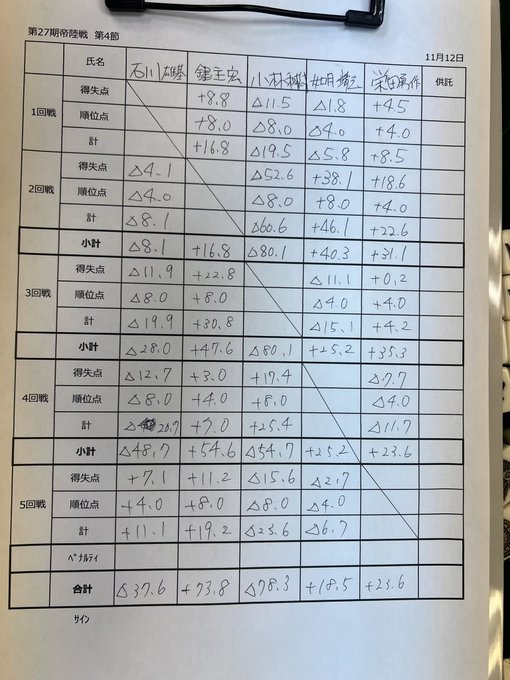 第27期帝陸戦 第4節
11月12日
氏名 石川 雄基 鍾圭宏 小林 如月靖之 柴田勇作 供託
1回戦 得失点 +8.8 △11.5 △1.8 +4.5
順位点 +8.0 △8.0 △4.0 +4.0
計 +16.8 △19.5 △5.8 +8.5
2回戦 得失点 △4.1 △52.6 +38.1 +18.6
順位点 △4.0 △8.0 +8.0 +4.0
計 △8.1 △60.6 +46.1 +22.6
小計 △8.1 +16.8 △80.1 +40.3 +31.1
3回戦 得失点 △11.9 +22.8 △11.1 +0.2
順位点 △8.0 +8.0 △4.0 +4.0
計 △19.9 +30.8 △15.1 +4.2
小計 △28.0 +47.6 △80.1 +25.2 +35.3
4回戦 得失点 △12.7 +3.0 +17.4 △7.7
順位点 △8.0 +4.0 +8.0 △4.0
計 △20.7 +7.0 +25.4 △11.7
小計 △48.7 +54.6 △54.7 +25.2 +23.6
5回戦 得失点 +7.1 +11.2 △15.6 △2.7
順位点 +4.0 +8.0 △8.0 △4.0
計 +11.1 +19.2 △23.6 △6.7
ﾍﾟﾅﾙﾃｨ
合計 △37.6 +73.8 △78.3 +18.5 +23.6
サイン